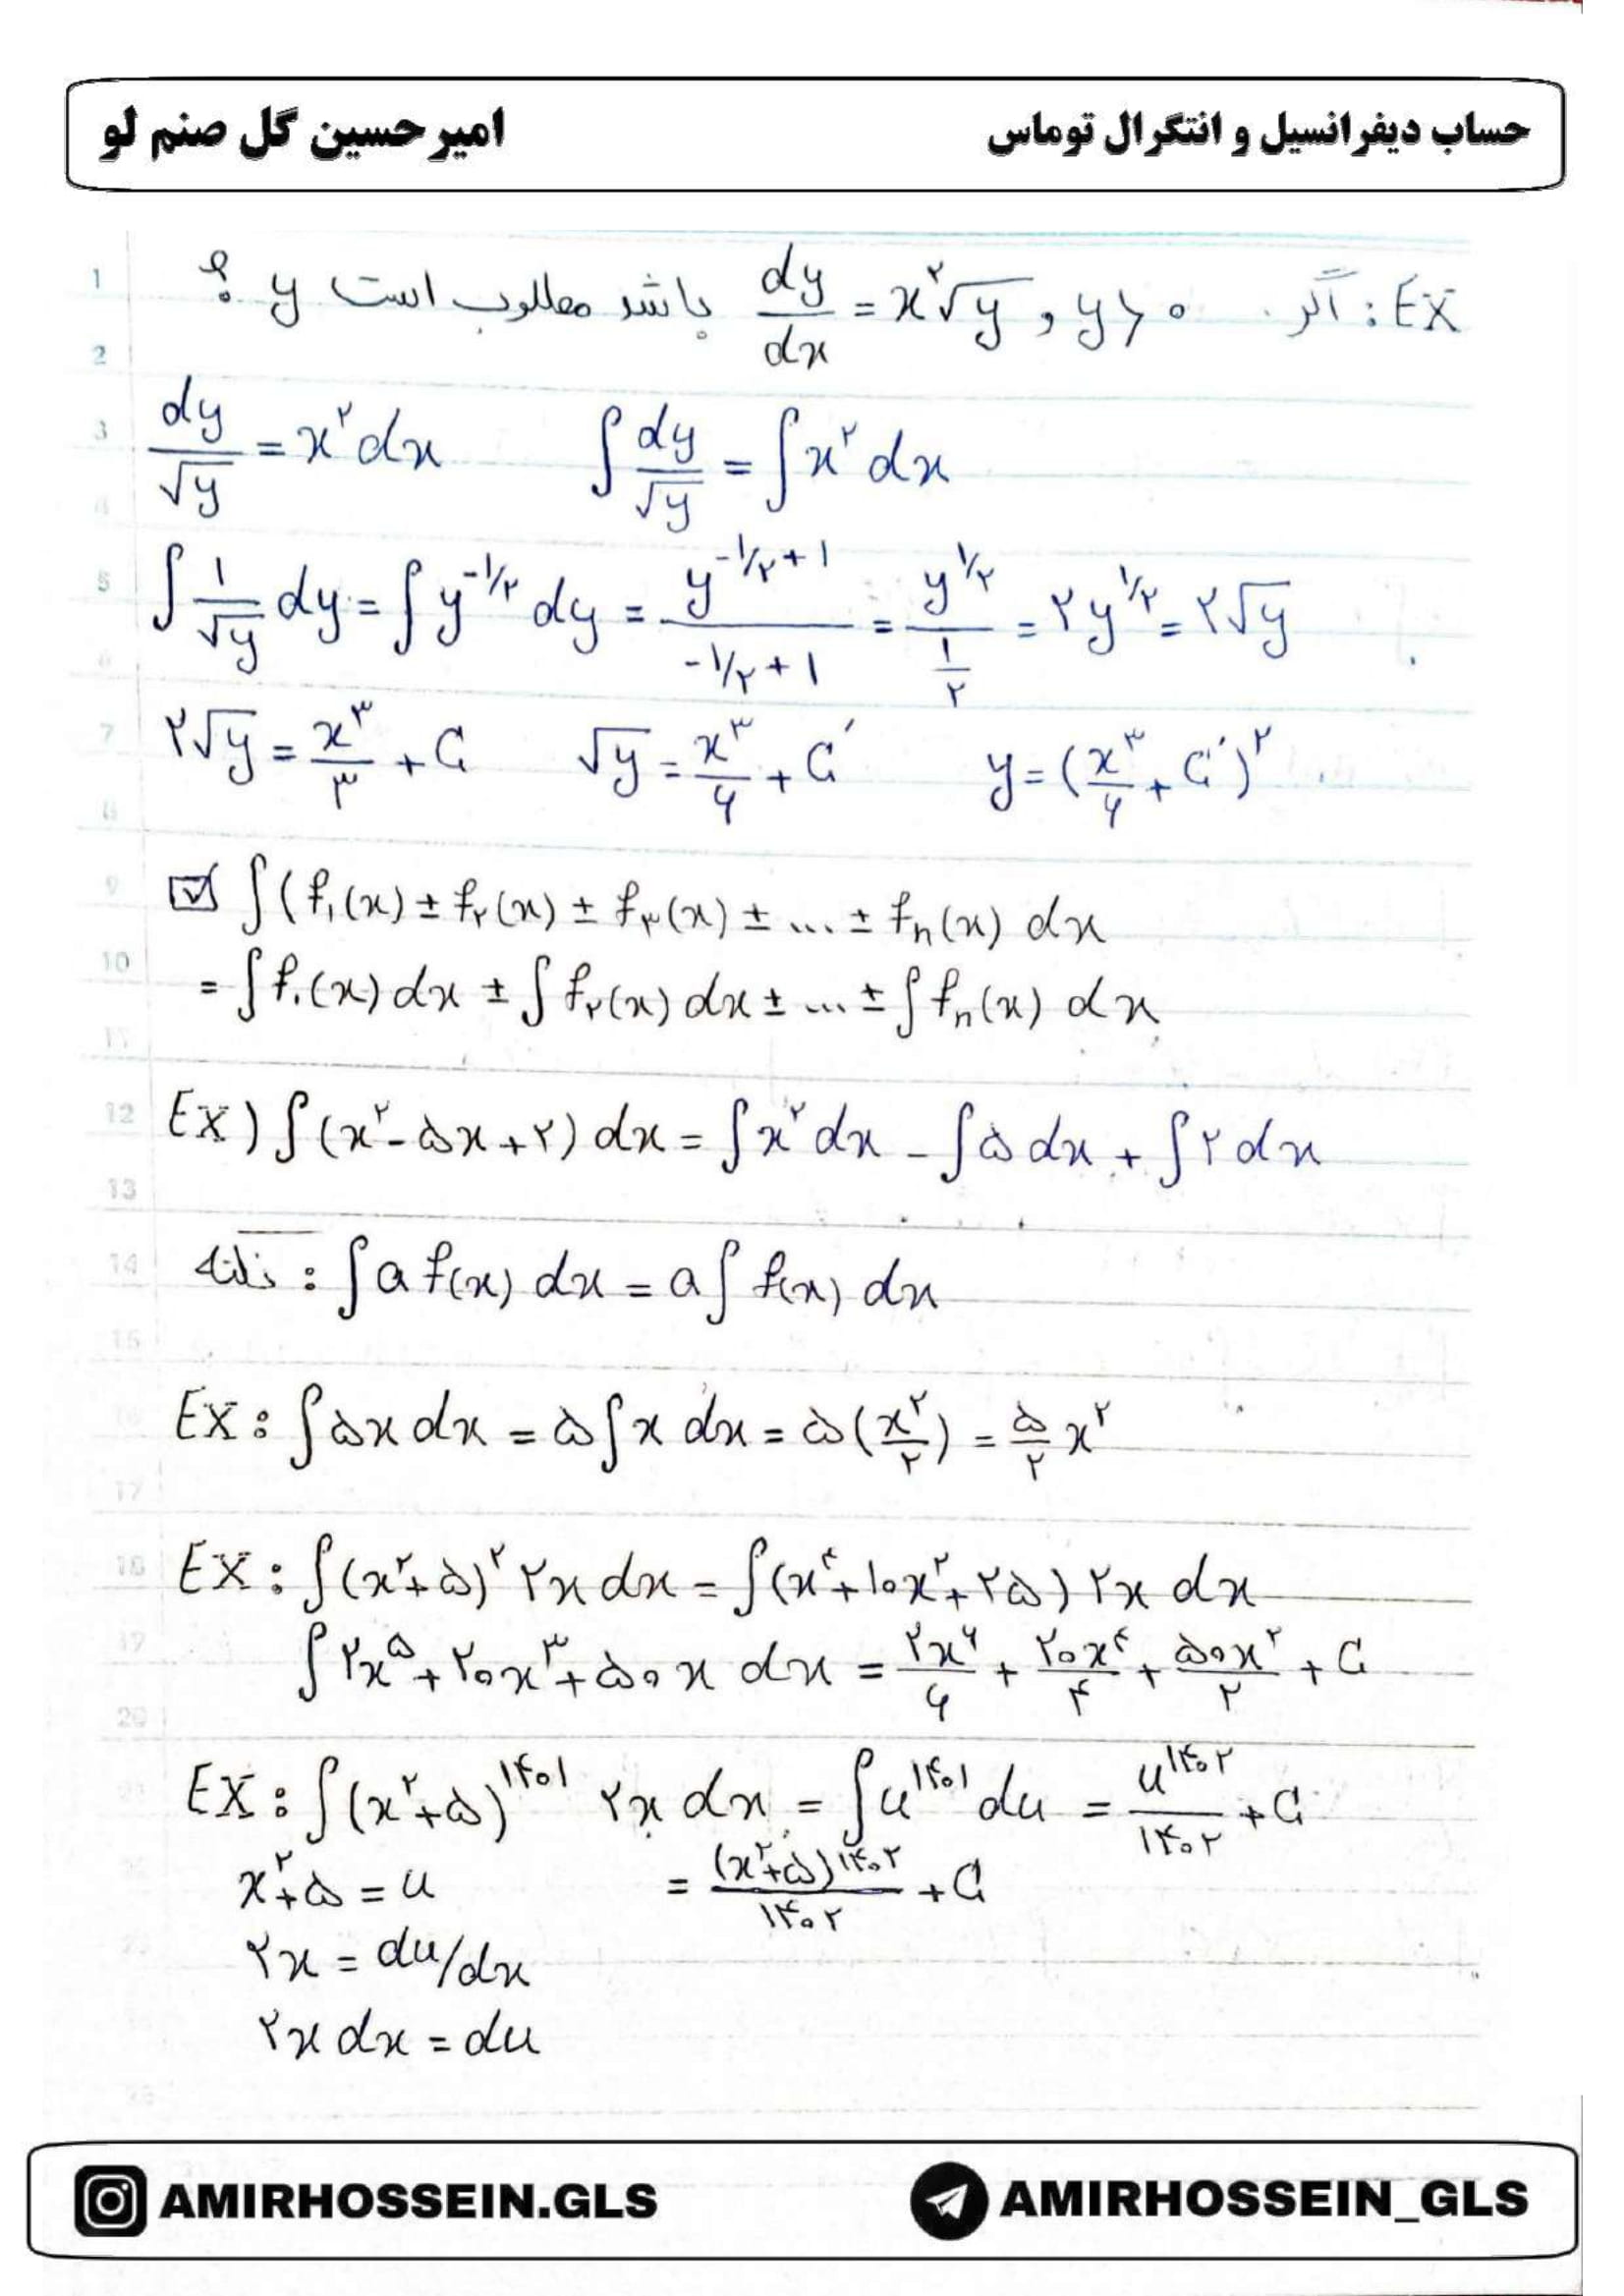 حساب دیفرانسیل و انتگرال توماس
امیرحسین گل صنم لو
EX: اگر dy/dx = x^۲√y , y > ۰ باشد مطلوب است y ؟
dy/√y = x^۲ dx    ∫ dy/√y = ∫ x^۲ dx
∫ ۱/√y dy = ∫ y^(-۱/۲) dy = y^(-۱/۲+۱)/(-۱/۲+۱) = y^(۱/۲)/(۱/۲) = ۲y^(۱/۲) = ۲√y
۲√y = x^۳/۳ + C    √y = x^۳/۶ + C′    y = (x^۳/۶ + C′)^۲
☑ ∫(f₁(x) ± f₂(x) ± f₃(x) ± ... ± fₙ(x) dx
= ∫f₁(x) dx ± ∫f₂(x) dx ± ... ± ∫fₙ(x) dx
EX) ∫(x^۲ - ۵x + ۲) dx = ∫x^۲ dx - ∫۵ dx + ∫۲ dx
نکته : ∫a f(x) dx = a∫ f(x) dx
EX: ∫۵x dx = ۵∫x dx = ۵(x^۲/۲) = ۵/۲ x^۲
EX: ∫(x^۲+۵)^۲ ۲x dx = ∫(x^۴+۱۰x^۲+۲۵) ۲x dx
∫۲x^۵+۲۰x^۳+۵۰x dx = ۲x^۶/۶ + ۲۰x^۴/۴ + ۵۰x^۲/۲ + C
EX: ∫(x^۲+۵)^۱۴۰۱ ۲x dx = ∫u^۱۴۰۱ du = u^۱۴۰۲/۱۴۰۲ + C
x^۲+۵ = u    = (x^۲+۵)^۱۴۰۲/۱۴۰۲ + C
۲x = du/dx
۲x dx = du
AMIRHOSSEIN.GLS
AMIRHOSSEIN_GLS